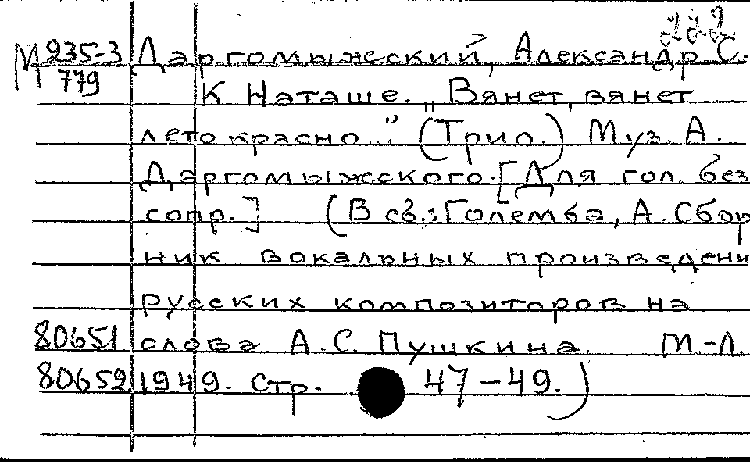 М 935-3 Даргомыжский, Александр С.
779 К Наташе. „Вянет, вянет
лето красно..." (Трио.) Муз. А.
Даргомыжского. [Для гол. без
сопр.] (В сб.: Големба, А. Сбор
ник вокальных произведени
русских композиторов на
80651 слова А.С. Пушкина М-Л.
80652 1949. Стр. 47-49.)